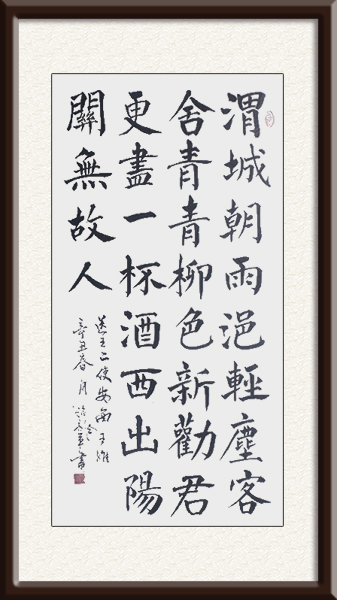 渭城朝雨浥輕塵客
舍青青柳色新勸君
更盡一杯酒西出陽
關無故人
送元二使安西王維
辛丑春月書